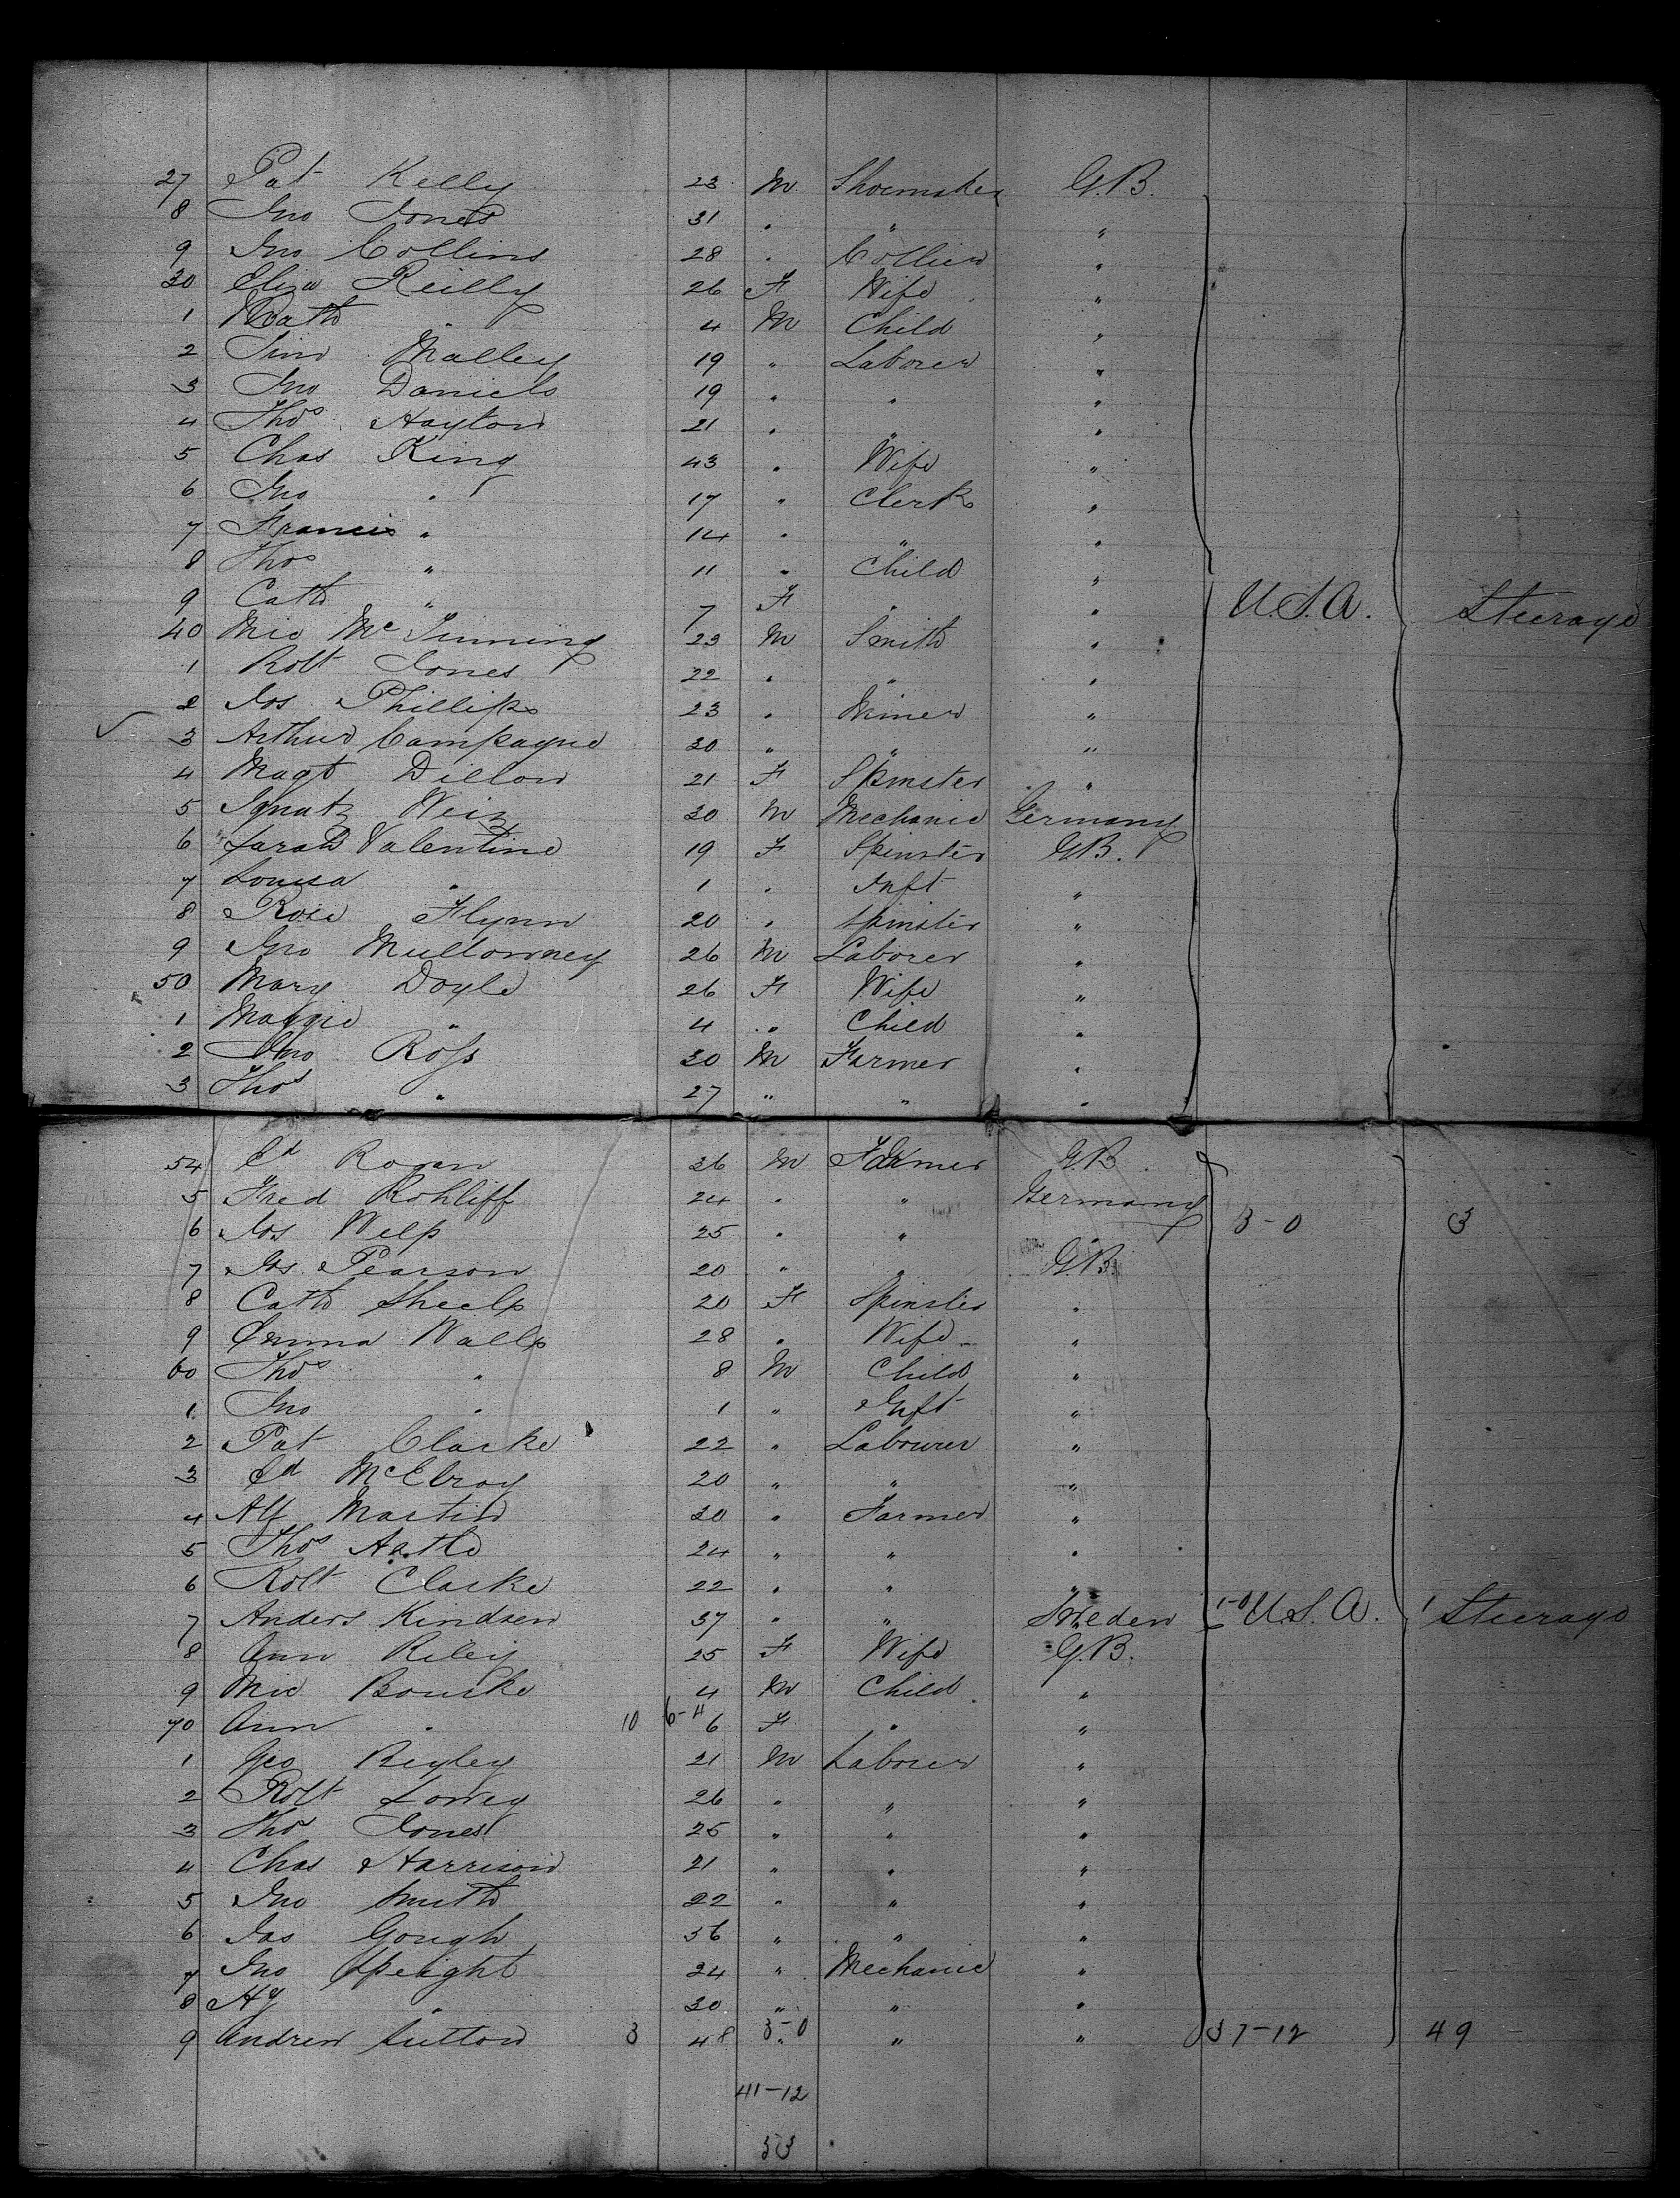 27 Pat Kelly 23 M Shoemaker G.B.
8 Jno Jones 31 " " "
9 Jno Collins 28 " Collier "
30 Eliza Reilly 26 F Wife "
1 Cath " 4 M Child "
2 Jim Malley 19 " Laborer "
3 Jno Daniels 19 " " "
4 Thos Hayton 21 " " "
5 Chas King 43 " Wife "
6 Jno " 17 " Clerk "
7 Francis " 14 " " "
8 Thos " 11 " Child "
9 Cath " 7 F " " U.S.A. Steerage
40 Mic 23 M Smith "
1 Robt Jones 22 " " "
2 Jos Phillips 23 " Miner "
3 Arthur Campagne 30 " " "
4 Magt Dillon 21 F Spinster "
5 Ignatz Weiz 30 M Mechanic Germany
6 Sarah Valentine 19 F Spinster G.B.
7 Louisa " 1 " Inft "
8 Rose Flynn 20 " Spinster "
9 Jno Mullowney 26 M Laborer "
50 Mary Doyle 26 F Wife "
1 Maggie " 4 " Child "
2 Jno Ross 30 M Farmer "
3 Thos " 27 " " "
54 Ed Rogan 26 M Farmer G.B.
5 Fred Rohliff 24 " " Germany
6 Jos Welp 25 " " " 3-0 3
7 Jos Pearson 20 " " G.B.
8 Cath 20 F Spinster "
9 Emma Walls 28 " Wife "
60 Thos " 8 M Child "
1 Jno " 1 " Inft "
2 Pat Clarke 22 " Labourer "
3 Ed McElroy 20 " " "
4 Alf Martin 30 " Farmer "
5 Thos 24 " " "
6 Robt Clarke 22 " " "
7 Anders Kindsen 37 " " Sweden 1-0 U.S.A. 1 Steerage
8 Ann Riley 25 F Wife G.B.
9 Mic Bourke 4 M Child "
70 Ann " 10 6-4 6 F " "
1 Geo 21 M Laborer "
2 Robt Lowey 26 " " "
3 Thos Jones 25 " " "
4 Chas Harrison 21 " " "
5 Jno Smith 22 " " "
6 Jas Gough 36 " " "
7 Jno Speight 24 " Mechanic "
8 Hy " 30 " " "
9 Andrew Sutton 3 48 3-0 " " " 37-12 49
41-12
53